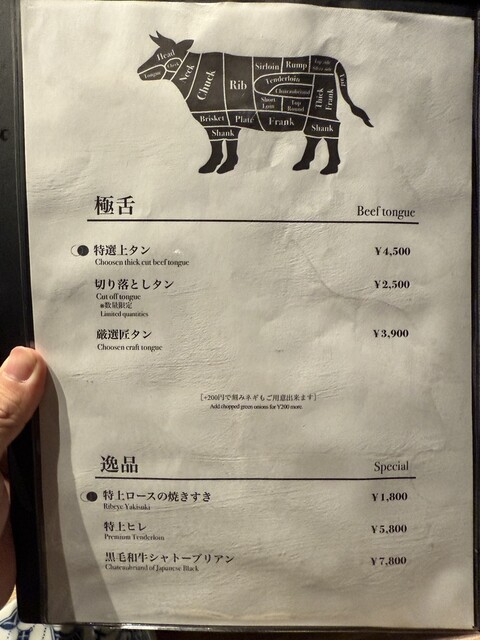 Head
Cheek
Tongue
Neck
Chuck
Rib
Sirloin
Rump
Tenderloin
Chateaubriand
Short Loin
Top Round
Thick Frank
Tail
Brisket
Plate
Frank
Shank
Shank
極舌 Beef tongue
特選上タン ¥4,500
Choosen thick cut beef tongue
切り落としタン ¥2,500
Cut off tongue
※数量限定
Limited quantities
厳選匠タン ¥3,900
Choosen craft tongue
[+200円で刻みネギもご用意出来ます]
Add chopped green onions for ¥200 more.
逸品 Special
特上ロースの焼きすき ¥1,800
Ribeye Yakisuki
特上ヒレ ¥5,800
Premium Tenderloin
黒毛和牛シャトーブリアン ¥7,800
Chateaubriand of Japanese Black